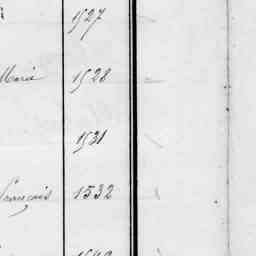 1527
Marie 1528
1531
François 1532